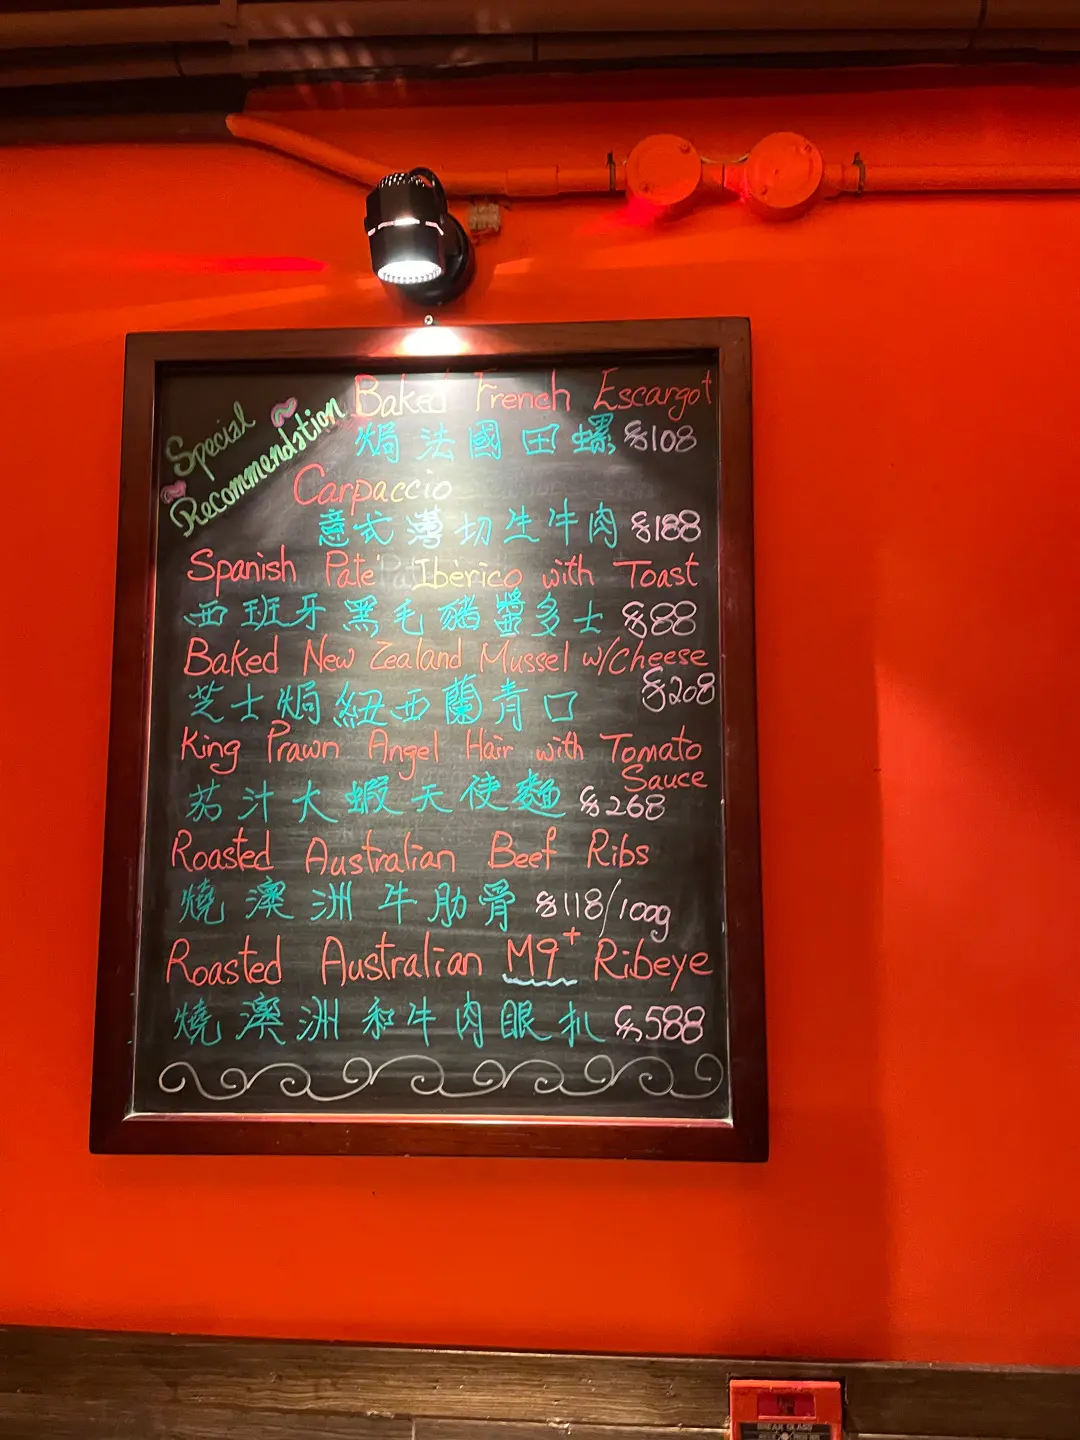 Special
Recommendation
Baked French Escargot
焗法國田螺 $108
Carpaccio
意式薄切生牛肉 $188
Spanish Pate Ibérico with Toast
西班牙黑毛豬醬多士 $88
Baked New Zealand Mussel w/Cheese
芝士焗紐西蘭青口 $208
King Prawn Angel Hair with Tomato
Sauce
茄汁大蝦天使麵 $268
Roasted Australian Beef Ribs
燒澳洲牛肋骨 $118/100g
Roasted Australian M9+ Ribeye
燒澳洲和牛肉眼扒 $588
BREAK GLASS